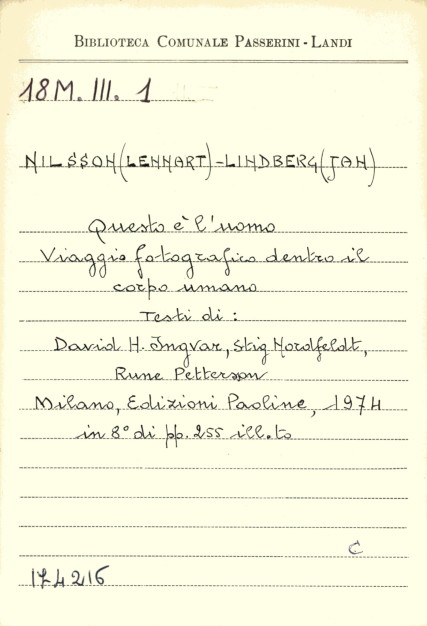 BIBLIOTECA COMUNALE PASSERINI - LANDI
18M. III. 1
NILSSON (LENNART) - LINDBERG (JAN)
Questo è l'uomo
Viaggio fotografico dentro il
corpo umano
Testi di :
David H. Ingvar, Stig Nordfeldt,
Rune Petterson
Milano, Edizioni Paoline, 1974
in 8° di pp. 255 ill.to
C
174216